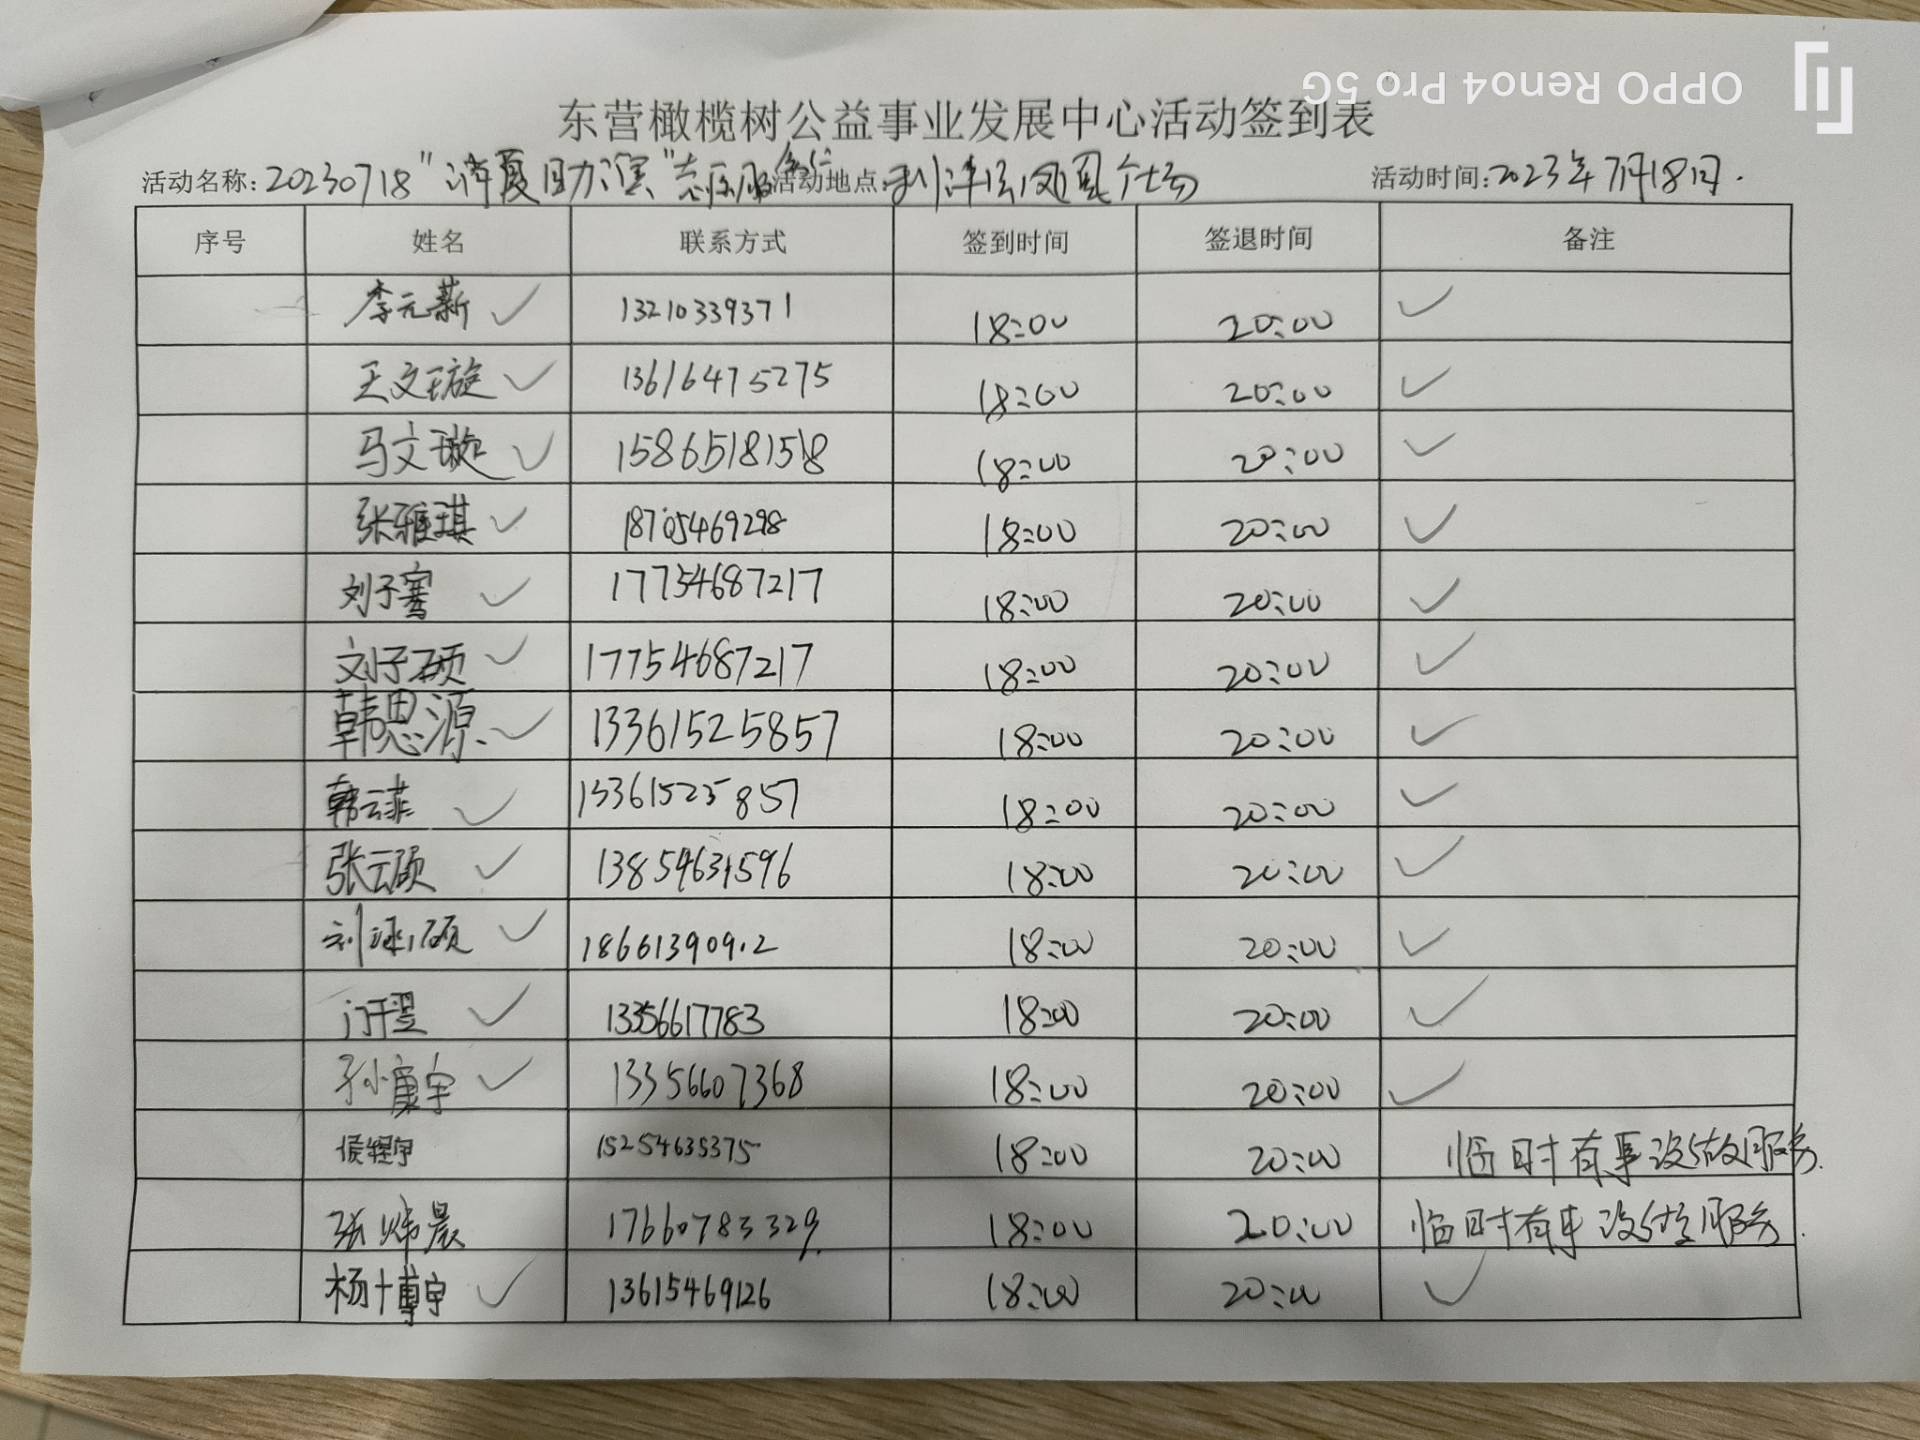 OPPO Reno4 Pro 5G
东营橄榄树公益事业发展中心活动签到表
活动名称:20230718"消夏助演"志愿服务 活动地点:利津县凤凰广场 活动时间:2023年7月18日.
序号 姓名 联系方式 签到时间 签退时间 备注
李元薪 ✓ 13210339371 18:00 20:00 ✓
王文璇 ✓ 13616475275 18:00 20:00 ✓
马文璇 ✓ 15865181518 18:00 20:00 ✓
张雅琪 ✓ 18705469298 18:00 20:00 ✓
刘子骞 ✓ 17754687217 18:00 20:00 ✓
刘子硕 ✓ 17754687217 18:00 20:00 ✓
韩思源 ✓ 13361525857 18:00 20:00 ✓
韩云菲 ✓ 13361525857 18:00 20:00 ✓
张云硕 ✓ 13854631596 18:00 20:00 ✓
刘 硕 ✓ 18:00 20:00 ✓
门千翌 ✓ 13356617783 18:00 20:00 ✓
孙康宇 ✓ 13356607368 18:00 20:00 ✓
侯程宇 15254635375 18:00 20:00 临时有事没做服务.
张炜晨 17660783329 18:00 20:00 临时有事没做服务.
杨博宇 ✓ 13615469126 18:00 20:00 ✓